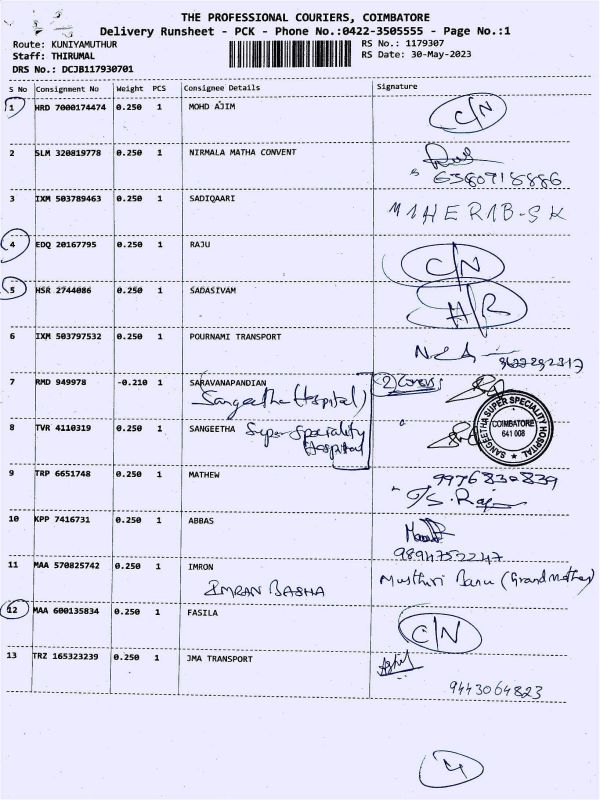 THE PROFESSIONAL COURIERS, COIMBATORE
Delivery Runsheet - PCK - Phone No.:0422-3505555 - Page No.:1
Route: KUNIYAMUTHUR
RS No.: 1179307
Staff: THIRUMAL
RS Date: 30-May-2023
DRS No.: DCJB117930701
S No Consignment No Weight PCS Consignee Details Signature
1 HRD 7000174474 0.250 1 MOHD AJIM C/N
2 SLM 320819778 0.250 1 NIRMALA MATHA CONVENT
6380918886
3 IXM 503789463 0.250 1 SADIQAARI MAHERAB-SK
4 EDQ 20167795 0.250 1 RAJU C/N
5 HSR 2744086 0.250 1 SADASIVAM H/R
6 IXM 503797532 0.250 1 POURNAMI TRANSPORT
9622292317
7 RMD 949978 -0.210 1 SARAVANAPANDIAN
Sangeetha Hospital)
8 TVR 4110319 0.250 1 SANGEETHA Super Speciality
Hospital
SANGEETHA SUPER SPECIALITY HOSPITAL
COIMBATORE
641 008
9 TRP 6651748 0.250 1 MATHEW 9976830839
10 KPP 7416731 0.250 1 ABBAS
9894753247
11 MAA 570825742 0.250 1 IMRON
IMRAN BASHA
Musthiri Banu (Grandmother)
12 MAA 600135834 0.250 1 FASILA C/N
13 TRZ 165323239 0.250 1 JMA TRANSPORT
9443064823
4